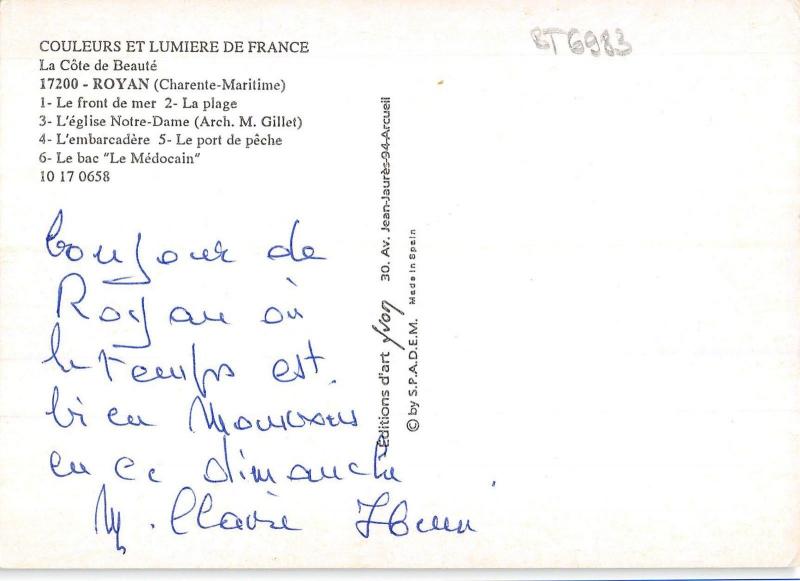 COULEURS ET LUMIERE DE FRANCE
La Côte de Beauté
17200 - ROYAN (Charente-Maritime)
1- Le front de mer 2- La plage
3- L'église Notre-Dame (Arch. M. Gillet)
4- L'embarcadère 5- Le port de pêche
6- Le bac "Le Médocain"
10 17 0658
BT6983
bonjour de
Royan où
le temps est
bien mauvais
en ce dimanche
M. Claire
Editions d'art yvon 30. Av. Jean-Jaurès-94-Arcueil
© by S.P.A.D.E.M. Made in Spain